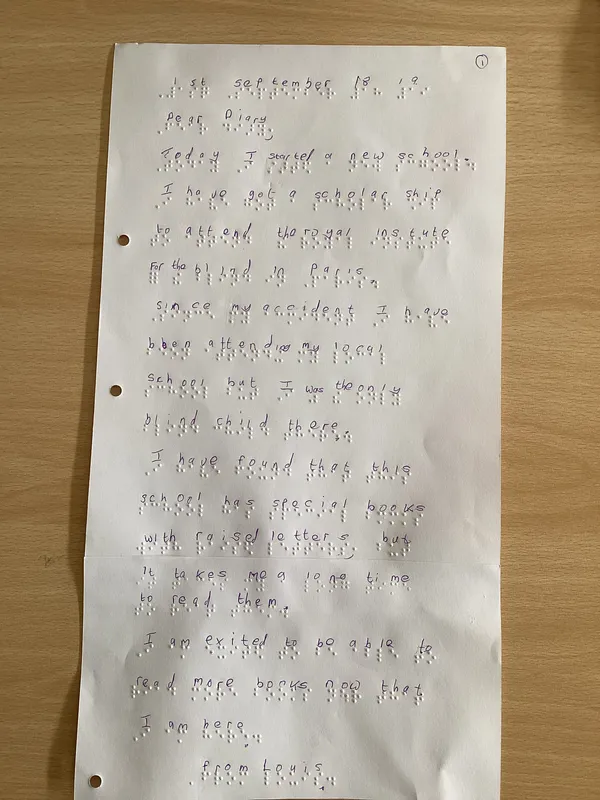 1
1st september 1819
Dear Diary,
Today I started a new school.
I have got a scholar ship
to attend the royal instute
For the blind in Paris.
since my accident I have
been attending my local
school but I was the only
blind child there.
I have found that this
school has special books
with raised letters, but
It takes me a long time
to read them.
I am exited to be able to
read more books now that
I am here.
From Louis.